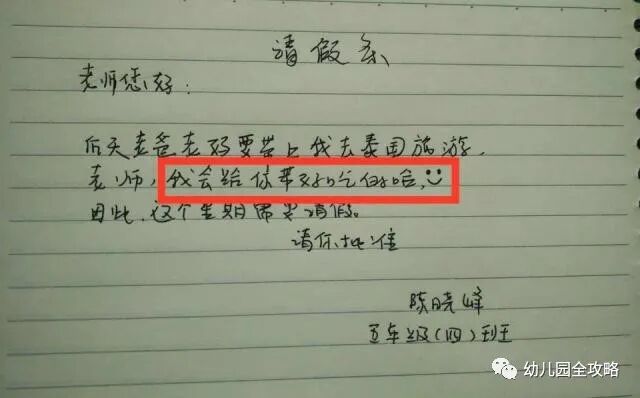 请假条
老师您好:
后天老爸老妈要带上我去泰国旅游,
老师,我会给你带好吃的哈,
因此,这个星期需要请假。
请你批准
陈晓峰
五年级(四)班
幼儿园全攻略